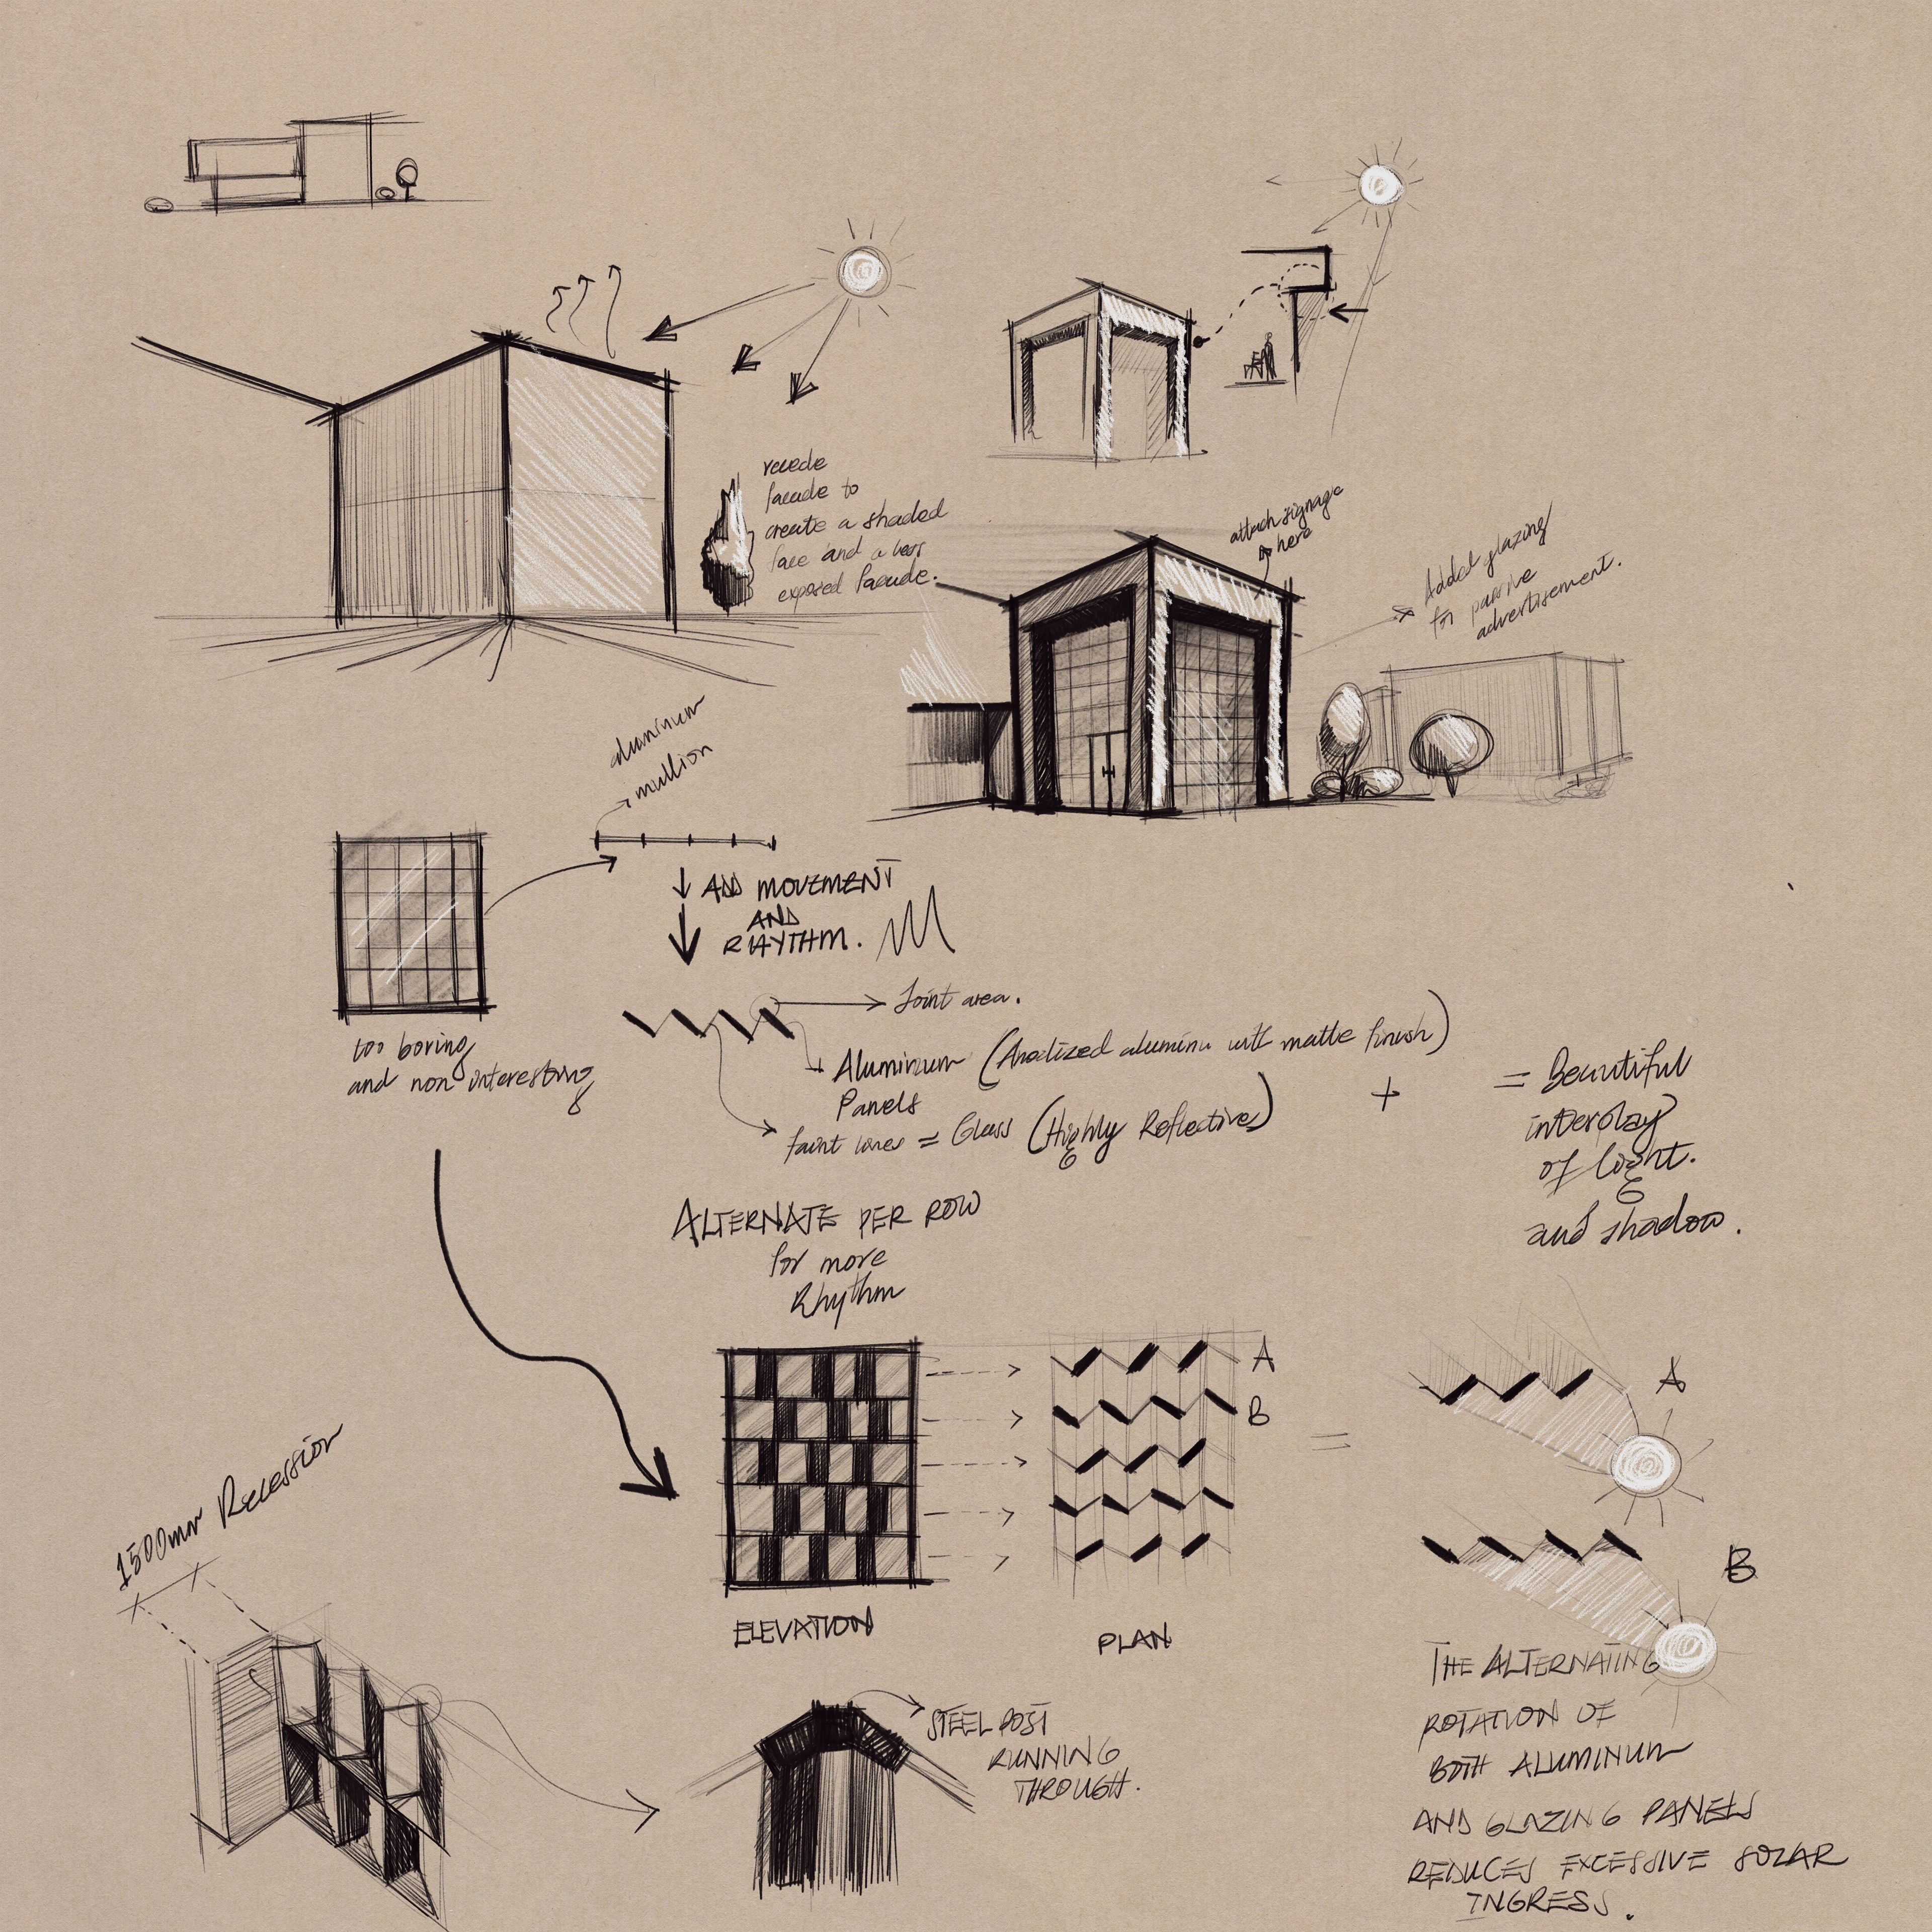 recede
facade to
create a shaded
face and a less
exposed facade.
attach signage
here
Added glazing
for passive
advertisement.
aluminum
mullion
ADD MOVEMENT
AND
RHYTHM.
too boring
and non interesting
Joint area.
Aluminum (Anodized aluminum with matte finish)
Panels
faint lines = Glass (Highly Reflective)
+
= Beautiful
interplay
of light.
and shadow.
ALTERNATE PER ROW
for more
Rhythm
A
B
=
A
B
ELEVATION
PLAN
1500mm Recession
STEEL POST
RUNNING
THROUGH.
THE ALTERNATING
ROTATION OF
BOTH ALUMINUM
AND GLAZING PANELS
REDUCES EXCESSIVE SOLAR
INGRESS.